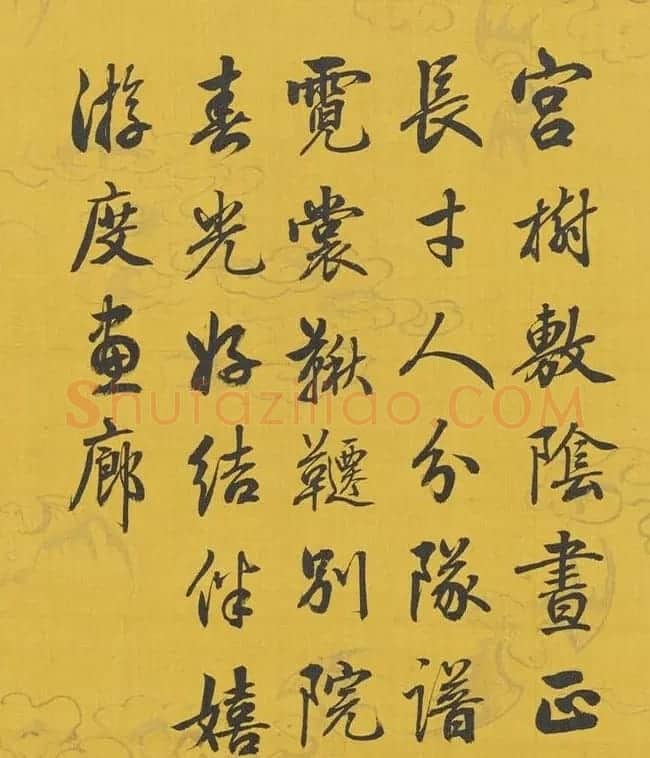 宮樹敷陰晝正
長才人分隊譜
霓裳鞦韆別院
春光好結伴嬉
游度畫廊
Shufaziliao.COM